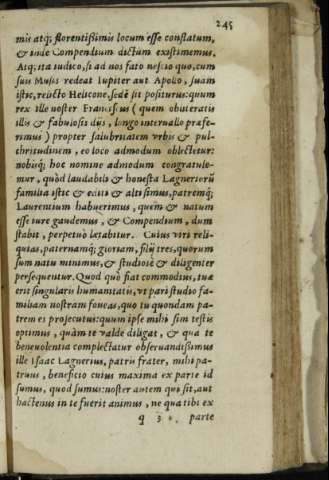 245
mis atq; florentissimis locum esse constatum,
& inde Compendium dictum existimemus.
Atq; ita iudico, si ad nos fato nescio quo, cum
suis Musis redeat Iupiter aut Apollo, suam
istic, relicto Helicone, sedē sit positurus: quum
rex ille noster Franciscus (quem obuceratis
illis & fabulosis dijs, longo interuallo præfe-
rimus) propter salubritatem vrbis & pul-
chritudinem, eo loco admodum oblectetur:
nobisq; hoc nomine admodum congratule-
mur, quòd laudabilis & honesta Lagneriorū
familia istic & edito & altissimus, patremq;
Laurentium habuerimus, quem & natum
esse iure gaudemus, & Compendium, dum
stabit, perpetuò lætabitur. Cuius viri reli-
quias, paternamq; gloriam, filij tres, quorum
sum natu minimus, & studiosè & diligenter
persequentur. Quod quò fiat commodius, tuæ
erit singularis humanitatis, vt pari studio fa-
miliam nostram foueas, quo tu quondam pa-
trem es prosecutus: quum ipse mihi sim testis
optimus, quàm te valde diligat, & qua te
beneuolentia complectatur obseruandissimus
ille Isaac Lagnerius, patris frater, mihi pa-
truus, beneficio cuius maxima ex parte id
sumus, quod sumus: noster autem qui sit, aut
hactenus in te fuerit animus, ne qua tibi ex
q 3 parte